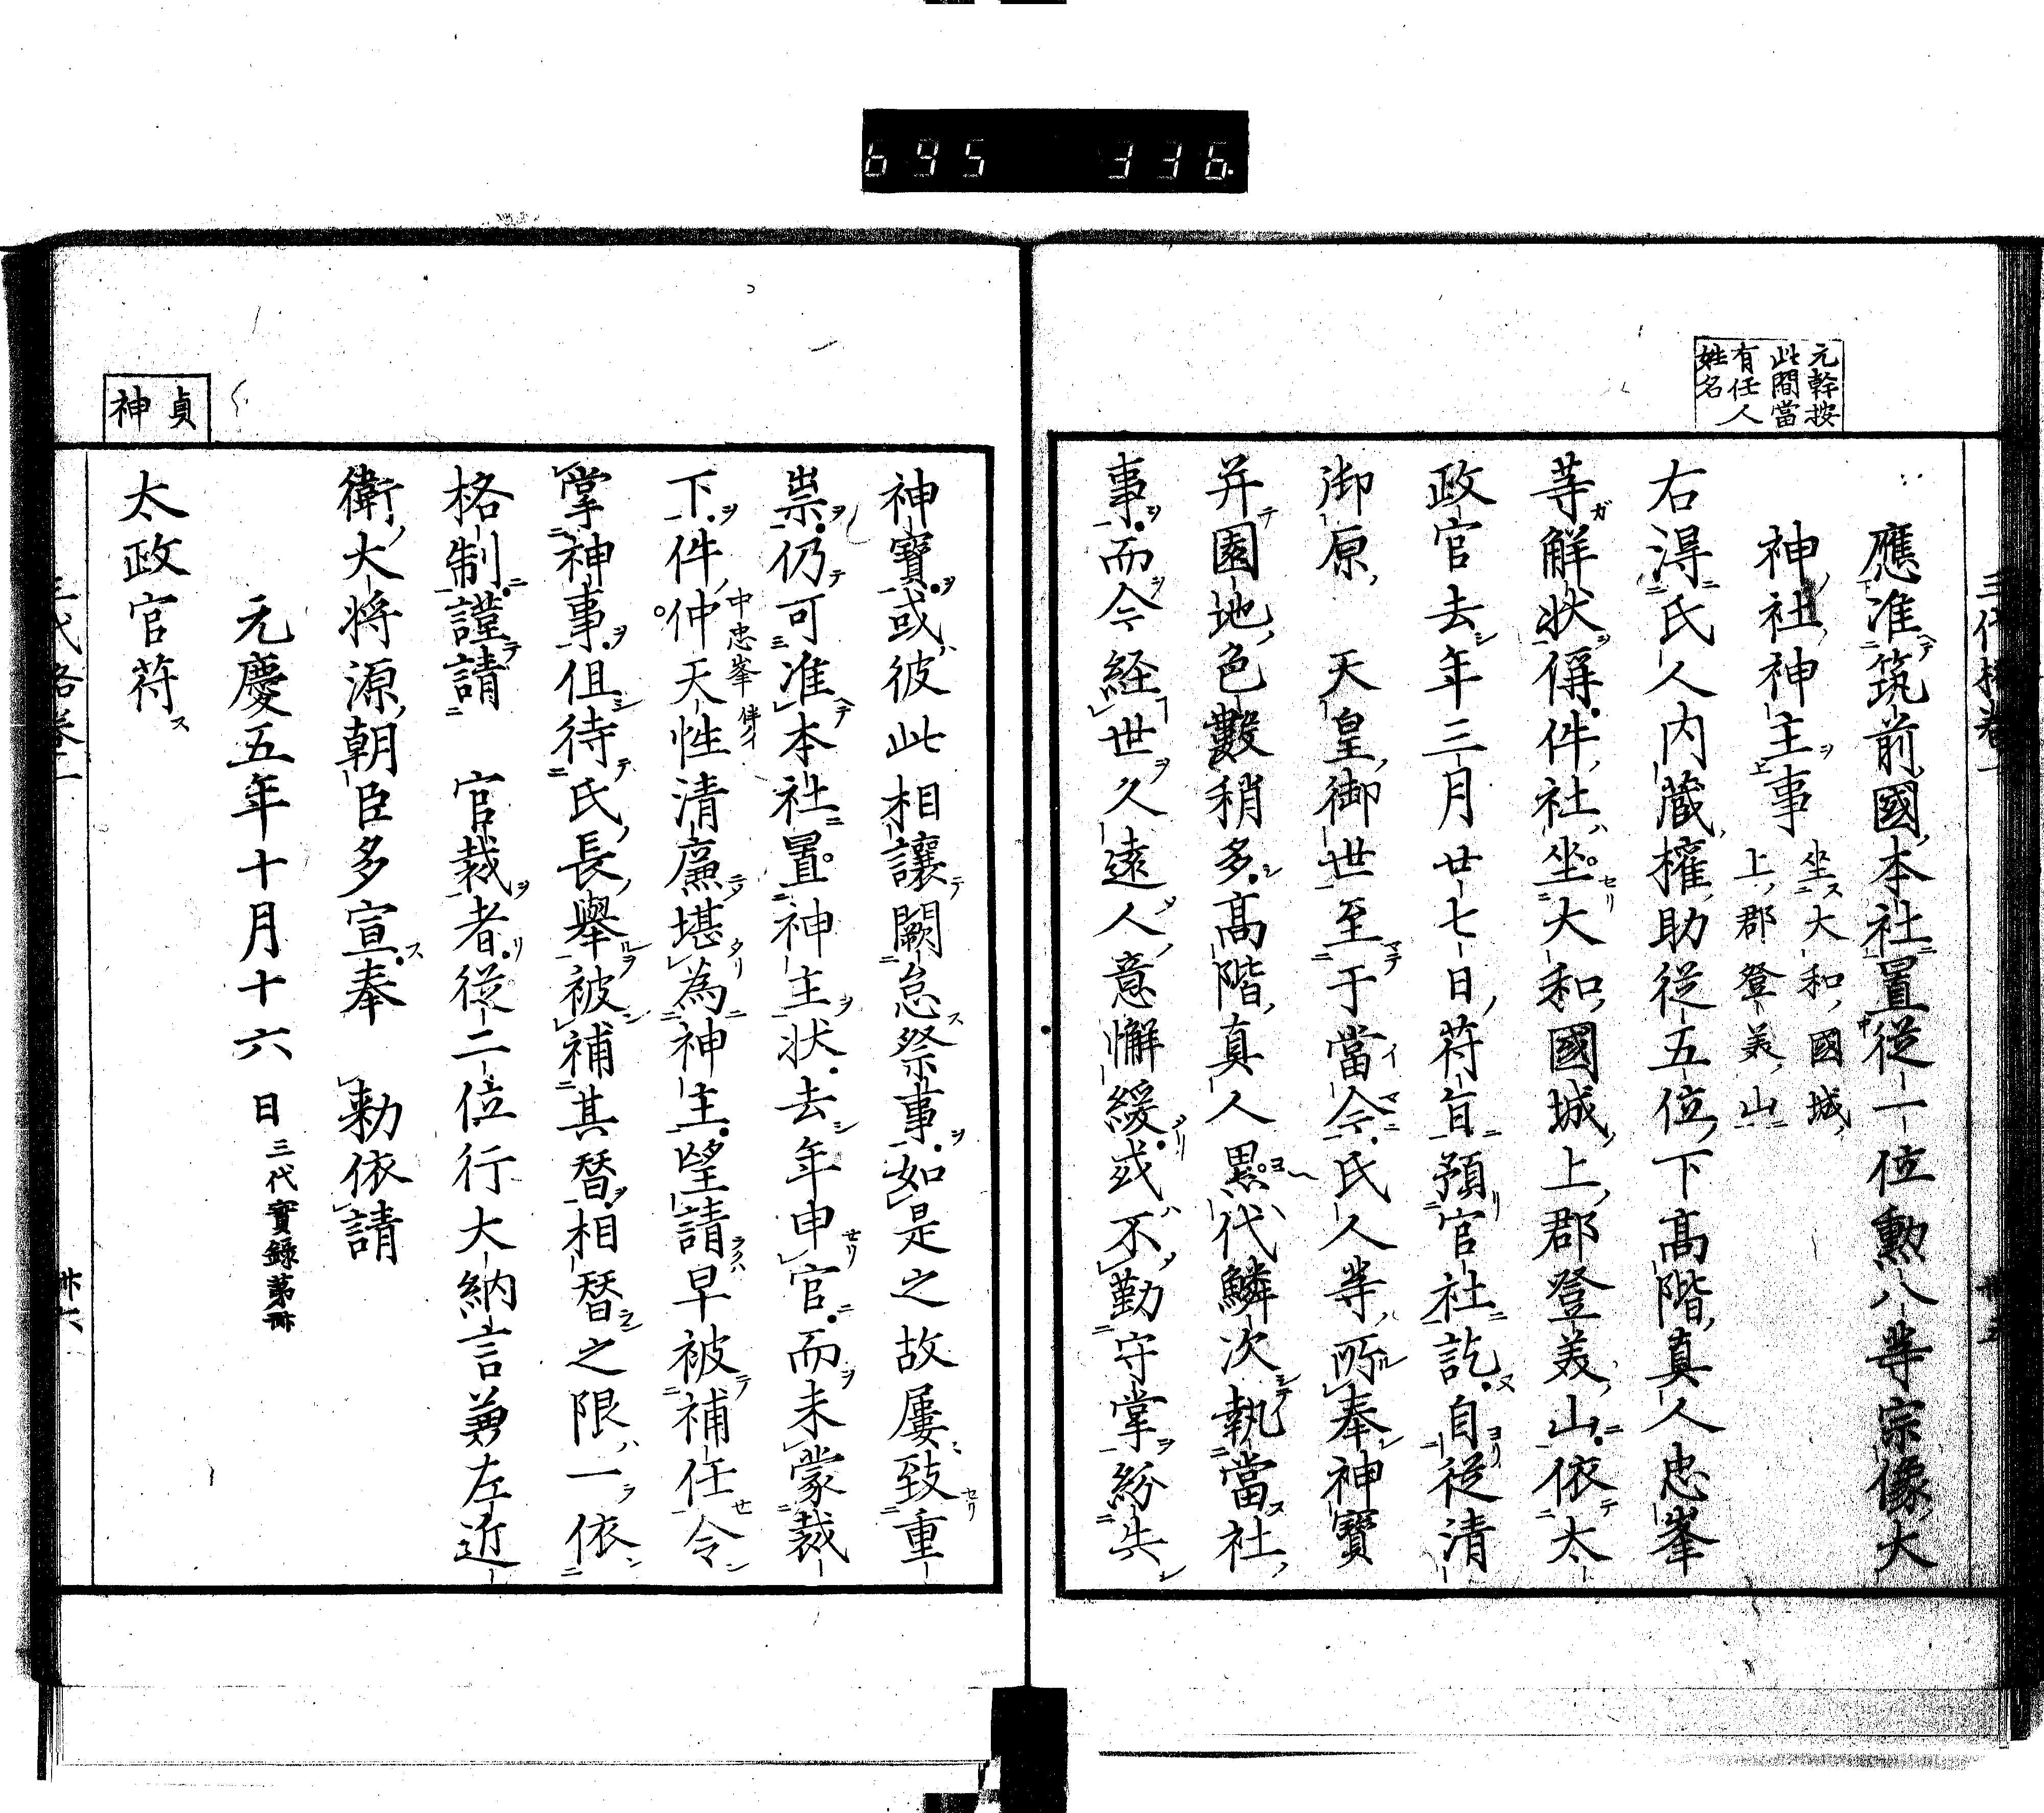 695 336
元幹按
此間當
有任人
姓名
應准筑前國本社置從一位勲八等宗像大
神社神主事 坐大和國城
上郡登美山
右得氏人内蔵権助從五位下高階真人忠峯
等解状偁件社坐大和國城上郡登美山依太
政官去年三月廿七日符旨預官社訖自從清
御原 天皇御世至于當今氏人等所奉神寶
并園地色數稍多高階真人累代鱗次執當社
事而今経世久遠人意懈緩或不勤守掌紛失
貞
神
神寶或彼此相讓闕怠祭事如是之故屢致重
祟仍可准本社置神主状去年申官而未蒙裁
下件仲天性清廉堪為神主望請早被補任令
中忠峯 伴イ
掌神事但待氏長舉被補其替相替之限一依
格制謹請 官裁者從二位行大納言兼左近
衛大将源朝臣多宣奉 勅依請
元慶五年十月十六日 三代實録第冊
太政官符